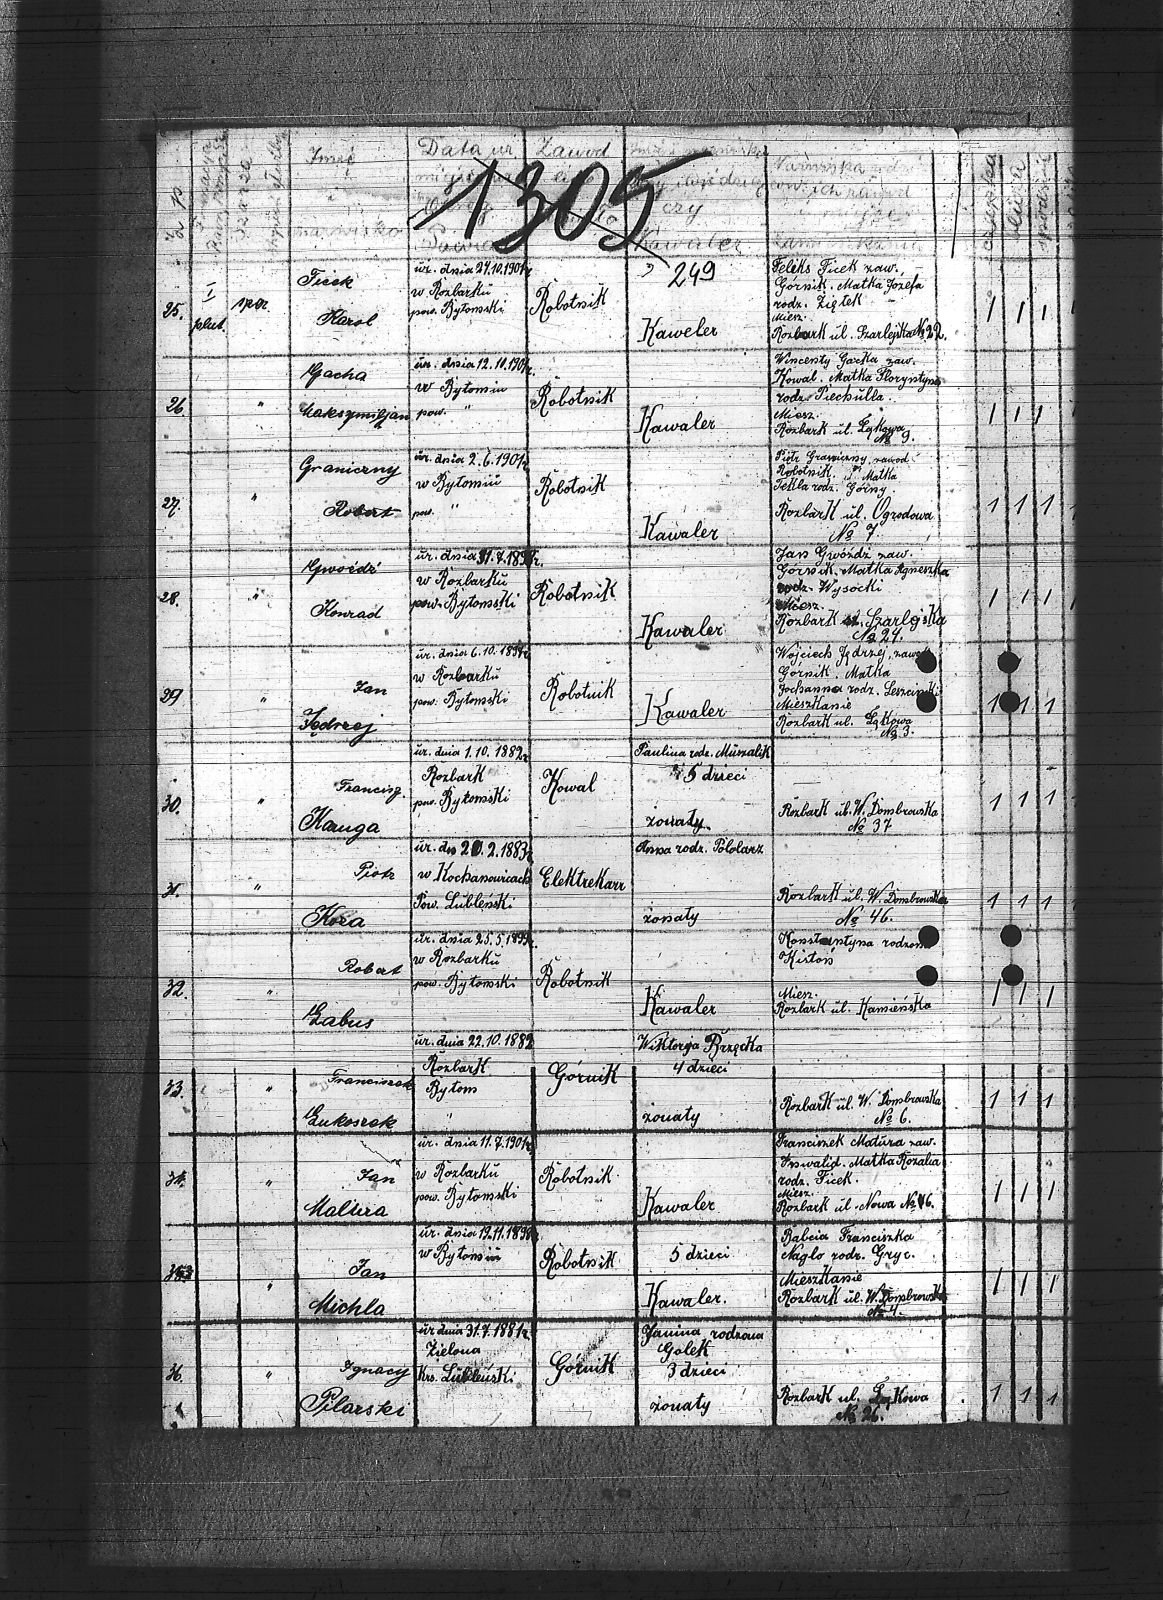 Imię Data ur Zawód
1305
nazwisko Powiat Kawaler
czy
249
25. I plut. szer. Ficek Karol
ur. dnia 27.10.1901r
w Rozbarku
pow. Bytomski
Robotnik
Kaweler
Feliks Ficek zaw.
Górnik. Matka Józefa
rodz. Ziętek
Miesz.
Rozbark ul. Szarlejska № 22.
1 1 1
26. " Gacka Maksymiljan
ur. dnia 12.10.1901r.
w Bytomiu
pow. "
Robotnik
Kawaler
Wincenty Gacka zaw.
Kowal. Matka Floryntyna
rodz. Piechulla.
Miesz.
Rozbark ul. Łąkowa
№ 9.
1 1 1
27. " Graniczny Robert
ur. dnia 2.6.1901r
w Bytomiu
pow. "
Robotnik
Kawaler
Piotr Graniczny zawod
Robotnik Matka
Tekla rodz. Górny
Rozbark ul. Ogrodowa
№ 7
1 1 1
28. " Gwoźdź Konrad
w Rozbarku
pow. Bytomski
Robotnik
Kawaler
Jan Gwóźdź zaw.
Górnik. Matka Agneszka
rodz. Wysocki
Miesz.
Rozbark ul. Szarlejska
№ 24.
1 1 1
29 " Jan Jędrzej
w Rozbarku
pow. Bytomski
Robotnik
Kawaler
Wojciech Jędrzej, zawod
Górnik. Matka
Jochanna rodz. Leszcinski
Mieszkanie
Rozbark ul. Łąkowa
№ 3.
1 1 1
30. " Francisz. Kanuga
ur. dnia 1.10.1882r
Rozbark
pow. Bytomski
Kowal
Paulina rodz. Muszalik
5 dzieci
żonaty.
Rozbark ul. W. Dombrowska
№ 37
1 1 1
31. " Piotr Koza
2.1883r
w Kochanowicach
Pow. Lubleński
Elektrekarz
Anna rodz. Pololarz
żonaty
Rozbark ul. W. Dombrowska
№ 46.
1 1 1
32. " Robert Łabus
w Rozbarku
pow. Bytomski
Robotnik
Kawaler
Konstantyna rodzona
Kistoń
Miesz.
Rozbark ul. Kamieńska
1 1 1
33. " Franciszek Łukoszek
ur. dnia 22.10.1882
Rozbark
Bytom
"
Górnik
Wiktorja Brzęcka
4 dzieci
żonaty
Rozbark ul. W. Dombrowska
№ 6.
1 1 1
34. " Jan Matura
ur. dnia 11.7.1901r
w Rozbarku
pow. Bytomski
Robotnik
Kawaler
Franciszek Matura zaw.
Inwalid. Matka Rozalia
rodz. Ficek.
Miesz.
Rozbark ul. Nowa № 16.
1 1 1
35 " Jan Michla
w Bytomiu
Robotnik
5 dzieci
Kawaler.
Babcia Franciszka
Naglo rodz. Gryc.
Mieszkanie
Rozbark ul. W. Dombrowska
№ 4.
1 1 1
36. " Ignacy Pilarski
ur dnia 31.7.1881r
Zielona
Krs. Lubleński
Górnik
Janina rodzona
Golek
3 dzieci
żonaty
Rozbark ul. Łąkowa
№ 26.
1 1 1